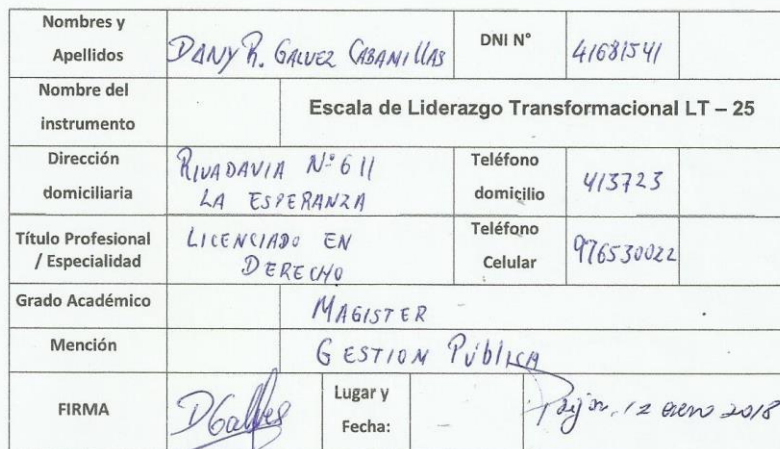 Nombres y
Apellidos
DANY R. GALVEZ CABANILLAS
DNI N°
41681541
Nombre del
instrumento
Escala de Liderazgo Transformacional LT – 25
Dirección
domiciliaria
RIVADAVIA N° 611
LA ESPERANZA
Teléfono
domicilio
413723
Título Profesional
/ Especialidad
LICENCIADO EN
DERECHO
Teléfono
Celular
976530022
Grado Académico
MAGISTER
Mención
GESTION PÚBLICA
FIRMA
DGalvez
Lugar y
Fecha:
12 enero 2018